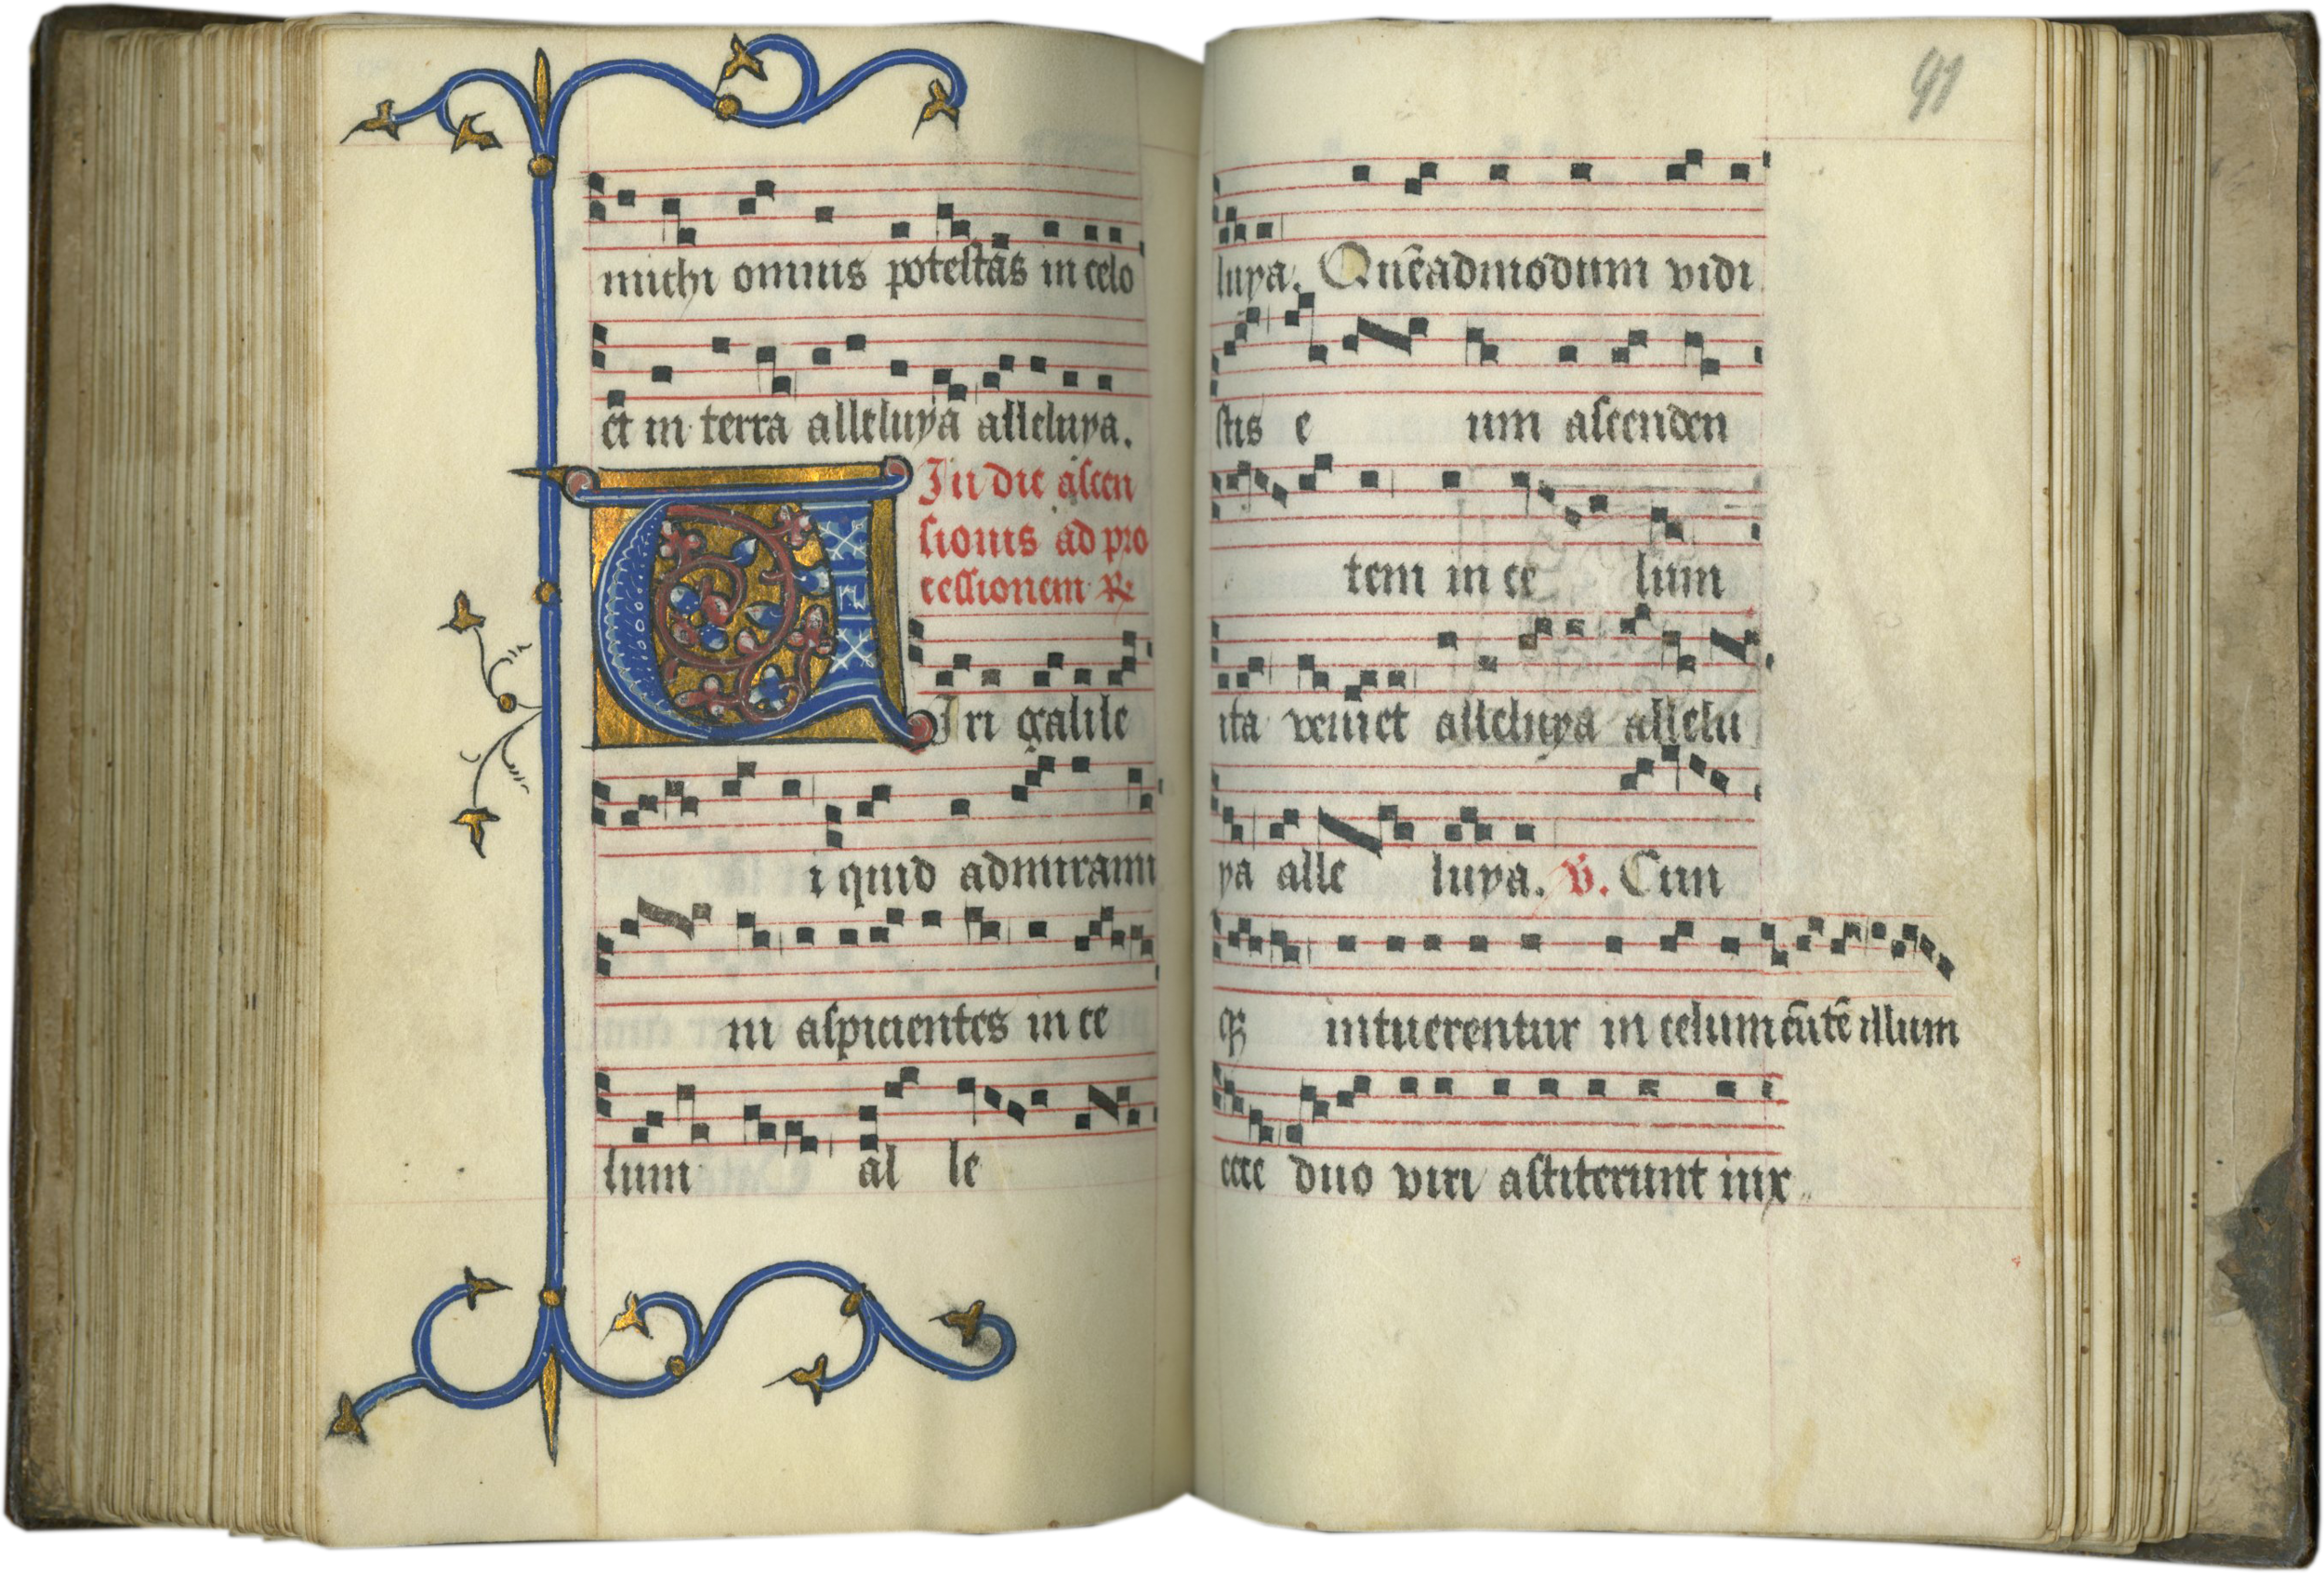 michi omnis potestas in celo
et in terra alleluya alleluya.
In die ascen
sionis ad pro
cessionem ℟
Viri galile
i quid admirami
ni aspicientes in ce
lum al le
91
luya. Quēadmodum vidi
stis e um ascenden
tem in ce lum
ita veniet alleluya allelu
ya alle luya. ℣. Cum
qꝫ intuerentur in celum eūtē illum
ecce duo viri astiterunt iux